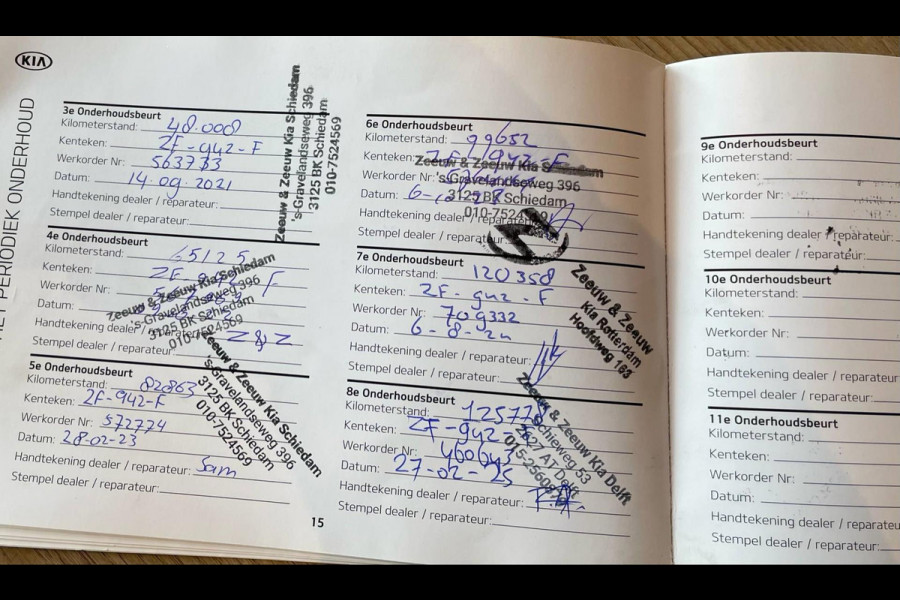 KIA
PERIODIEK ONDERHOUD
3e Onderhoudsbeurt
Kilometerstand: 48.000
Kenteken: ZF-942-F
Werkorder Nr: 563733
Datum: 14.09.2021
Handtekening dealer / reparateur:
Stempel dealer / reparateur:
Zeeuw & Zeeuw Kia Schiedam
's-Gravelandseweg 396
3125 BK Schiedam
010-7524569
4e Onderhoudsbeurt
Kilometerstand: 65125
Kenteken: ZF
Werkorder Nr:
Datum:
Handtekening dealer / Z&Z
Stempel dealer / reparateur:
Zeeuw & Zeeuw Kia Schiedam
's-Gravelandseweg 396
3125 BK Schiedam
010-7524569
5e Onderhoudsbeurt
Kilometerstand: 82863
Kenteken: ZF-942-F
Werkorder Nr: 572774
Datum: 28-02-23
Handtekening dealer / reparateur: Sam
Stempel dealer / reparateur:
Zeeuw & Zeeuw Kia Schiedam
's-Gravelandseweg 396
3125 BK Schiedam
010-7524569
15
6e Onderhoudsbeurt
Kilometerstand: 99652
Kenteken:
Werkorder Nr:
Datum:
Handtekening dealer / reparateur:
Stempel dealer / reparateur:
Zeeuw & Zeeuw Kia Schiedam
's-Gravelandseweg 396
3125 BK Schiedam
010-7524
7e Onderhoudsbeurt
Kilometerstand: 120358
Kenteken: ZF-942-F
Werkorder Nr: 709332
Datum: 6-8-24
Handtekening dealer / reparateur:
Stempel dealer / reparateur:
Zeeuw & Zeeuw
Kia Rotterdam
Hoofdweg 163
8e Onderhoudsbeurt
Kilometerstand:
Kenteken: ZF-942
Werkorder Nr: 460643
Datum: 27-02-25
Handtekening dealer / reparateur:
Stempel dealer / reparateur:
Zeeuw & Zeeuw Kia Delft
Schieweg 53
2627 AT Delft
9e Onderhoudsbeurt
Kilometerstand:
Kenteken:
Werkorder Nr:
Datum:
Handtekening dealer / reparateur:
Stempel dealer / reparateur:
10e Onderhoudsbeurt
Kilometerstand:
Kenteken:
Werkorder Nr:
Datum:
Handtekening dealer / reparateur
Stempel dealer / reparateur:
11e Onderhoudsbeurt
Kilometerstand:
Kenteken:
Werkorder Nr:
Datum:
Handtekening dealer / reparateu
Stempel dealer / reparateur: